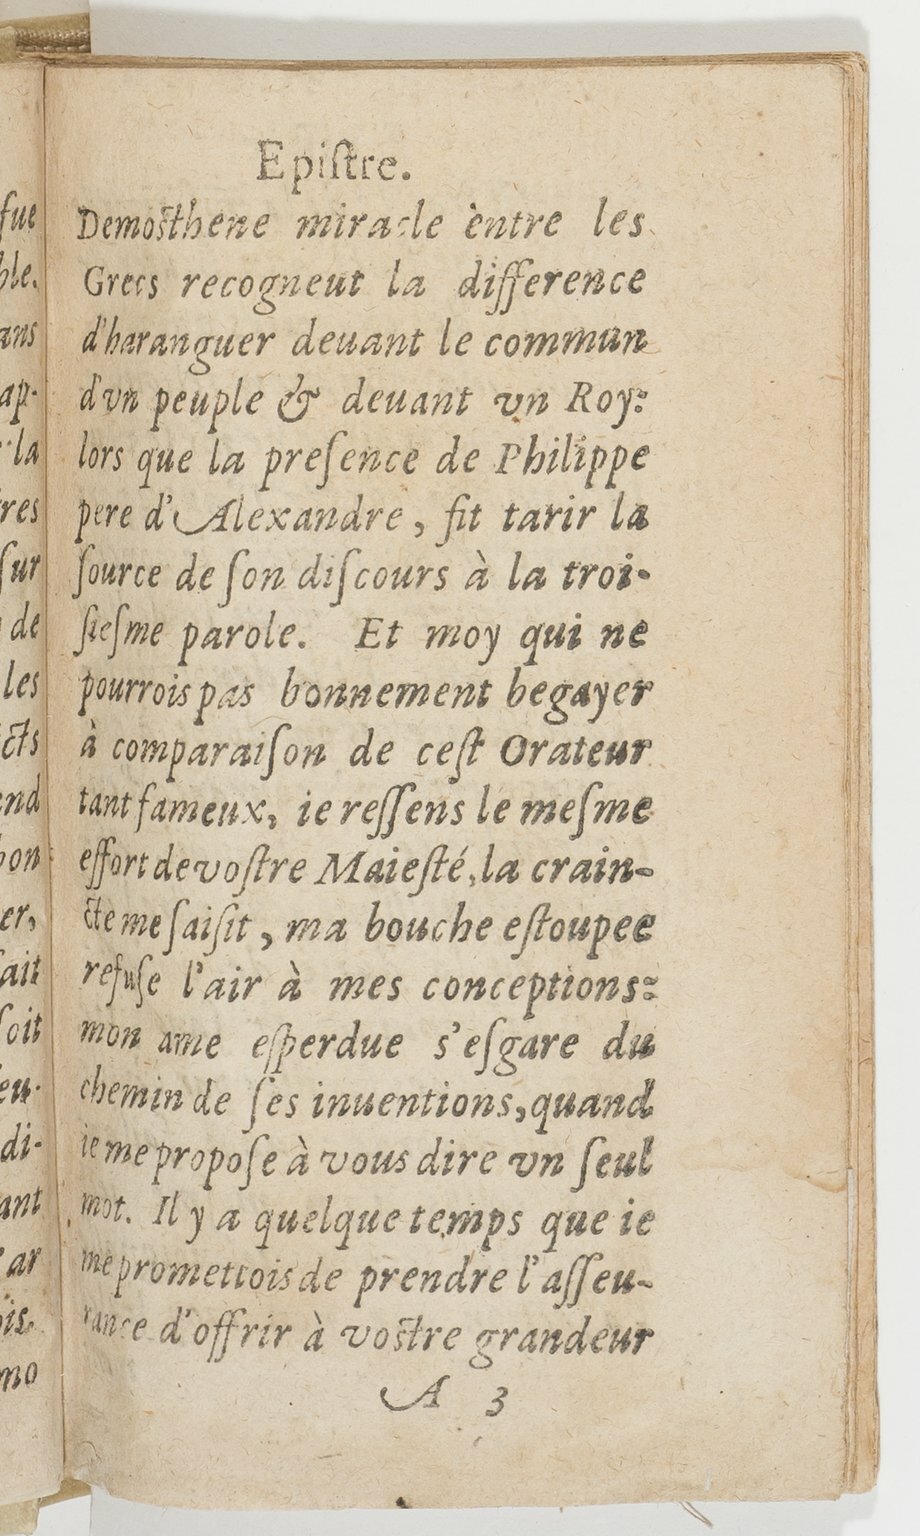 Epiſtre.
Demoſthene miracle èntre les
Grecs recogneut la difference
d'haranguer deuant le commun
d'vn peuple & deuant vn Roy:
lors que la preſence de Philippe
pere d'Alexandre, fit tarir la
ſource de ſon diſcours à la troi-
ſieſme parole. Et moy qui ne
pourrois pas bonnement begayer
à comparaiſon de ceſt Orateur
tant fameux, ie reſſens le meſme
effort de voſtre Maieſté, la crain-
cte me ſaiſit, ma bouche eſtoupee
refuſe l'air à mes conceptions:
mon ame eſperdue s'eſgare du
chemin de ſes inuentions, quand
ie me propoſe à vous dire vn ſeul
mot. Il y a quelque temps que ie
me promettois de prendre l'aſſeu-
rance d'offrir à voſtre grandeur
A 3
ſue
ble.
ans
ap-
la
res
ſur
de
les
cts
end
bon
er,
ſait
ſoit
eu-
di-
ant
ar
ois.
mo